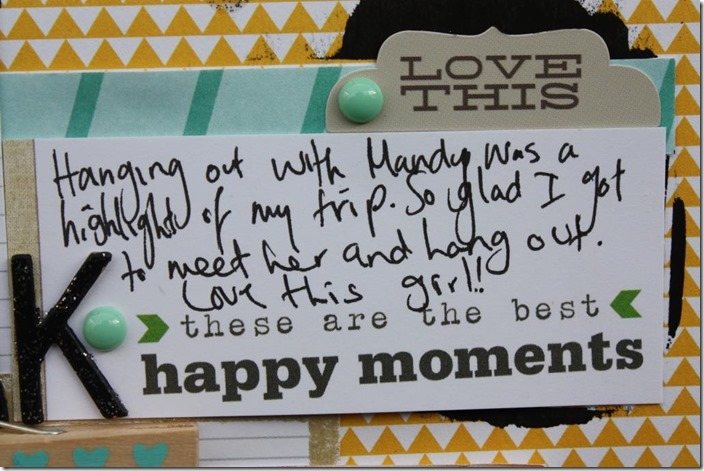 LOVE
THIS
Hanging out with Mandy was a
highlight of my trip. So glad I got
to meet her and hang out.
Love this girl!!
K
these are the best
happy moments